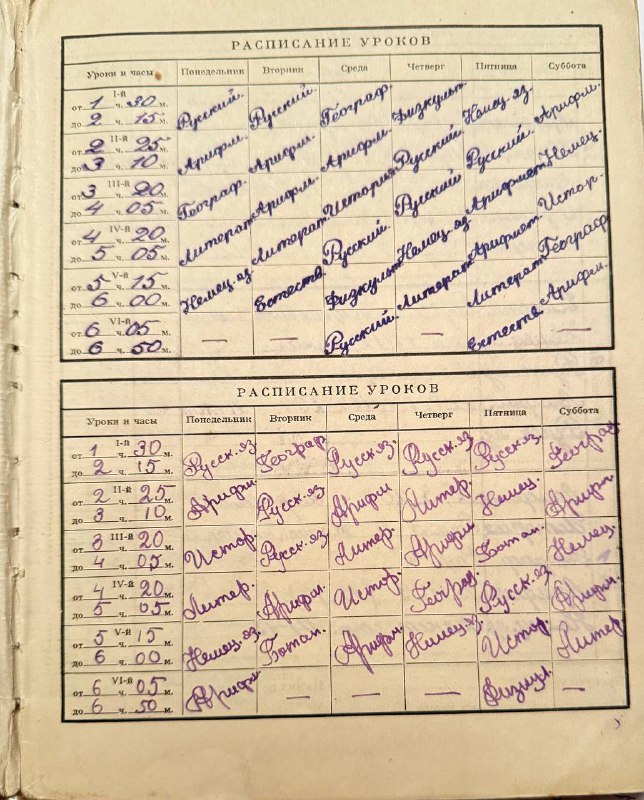 РАСПИСАНИЕ УРОКОВ
Уроки и часы Понедельник Вторник Среда Четверг Пятница Суббота
I-й
от 1 ч. 30 м. до 2 ч. 15 м. Русский. Русский. Географ. Физкульт. Немец. яз. Арифм.
II-й
от 2 ч. 25 м. до 3 ч. 10 м. Арифм. Арифм. Арифм. Русский Русский. Немец.
III-й
от 3 ч. 20 м. до 4 ч. 05 м. Географ. Арифм. История Русский Арифмет. Истор.
IV-й
от 4 ч. 20 м. до 5 ч. 05 м. Литерат. Литерат. Русский. Немец. яз. Арифмет. Географ.
V-й
от 5 ч. 15 м. до 6 ч. 00 м. Немец. яз. Естеств. Физкульт. Литерат. Литерат. Арифм.
VI-й
от 6 ч. 05 м. до 6 ч. 50 м. — — Русский. — Естеств. —
РАСПИСАНИЕ УРОКОВ
Уроки и часы Понедельник Вторник Среда Четверг Пятница Суббота
I-й
от 1 ч. 30 м. до 2 ч. 15 м. Русск. яз. Географ. Русск. яз. Русск. яз. Русск. яз. Географ.
II-й
от 2 ч. 25 м. до 3 ч. 10 м. Арифм. Русск. яз. Арифм. Литер. Немец. Арифм.
III-й
от 3 ч. 20 м. до 4 ч. 05 м. Истор. Русск. яз. Литер. Арифм. Ботан. Немец.
IV-й
от 4 ч. 20 м. до 5 ч. 05 м. Литер. Арифм. Истор. Географ. Русск. яз. Арифм.
V-й
от 5 ч. 15 м. до 6 ч. 00 м. Немец. яз. Ботан. Арифм. Немец. яз. Истор. Литер.
VI-й
от 6 ч. 05 м. до 6 ч. 50 м. Арифм. — — — Физкул. —